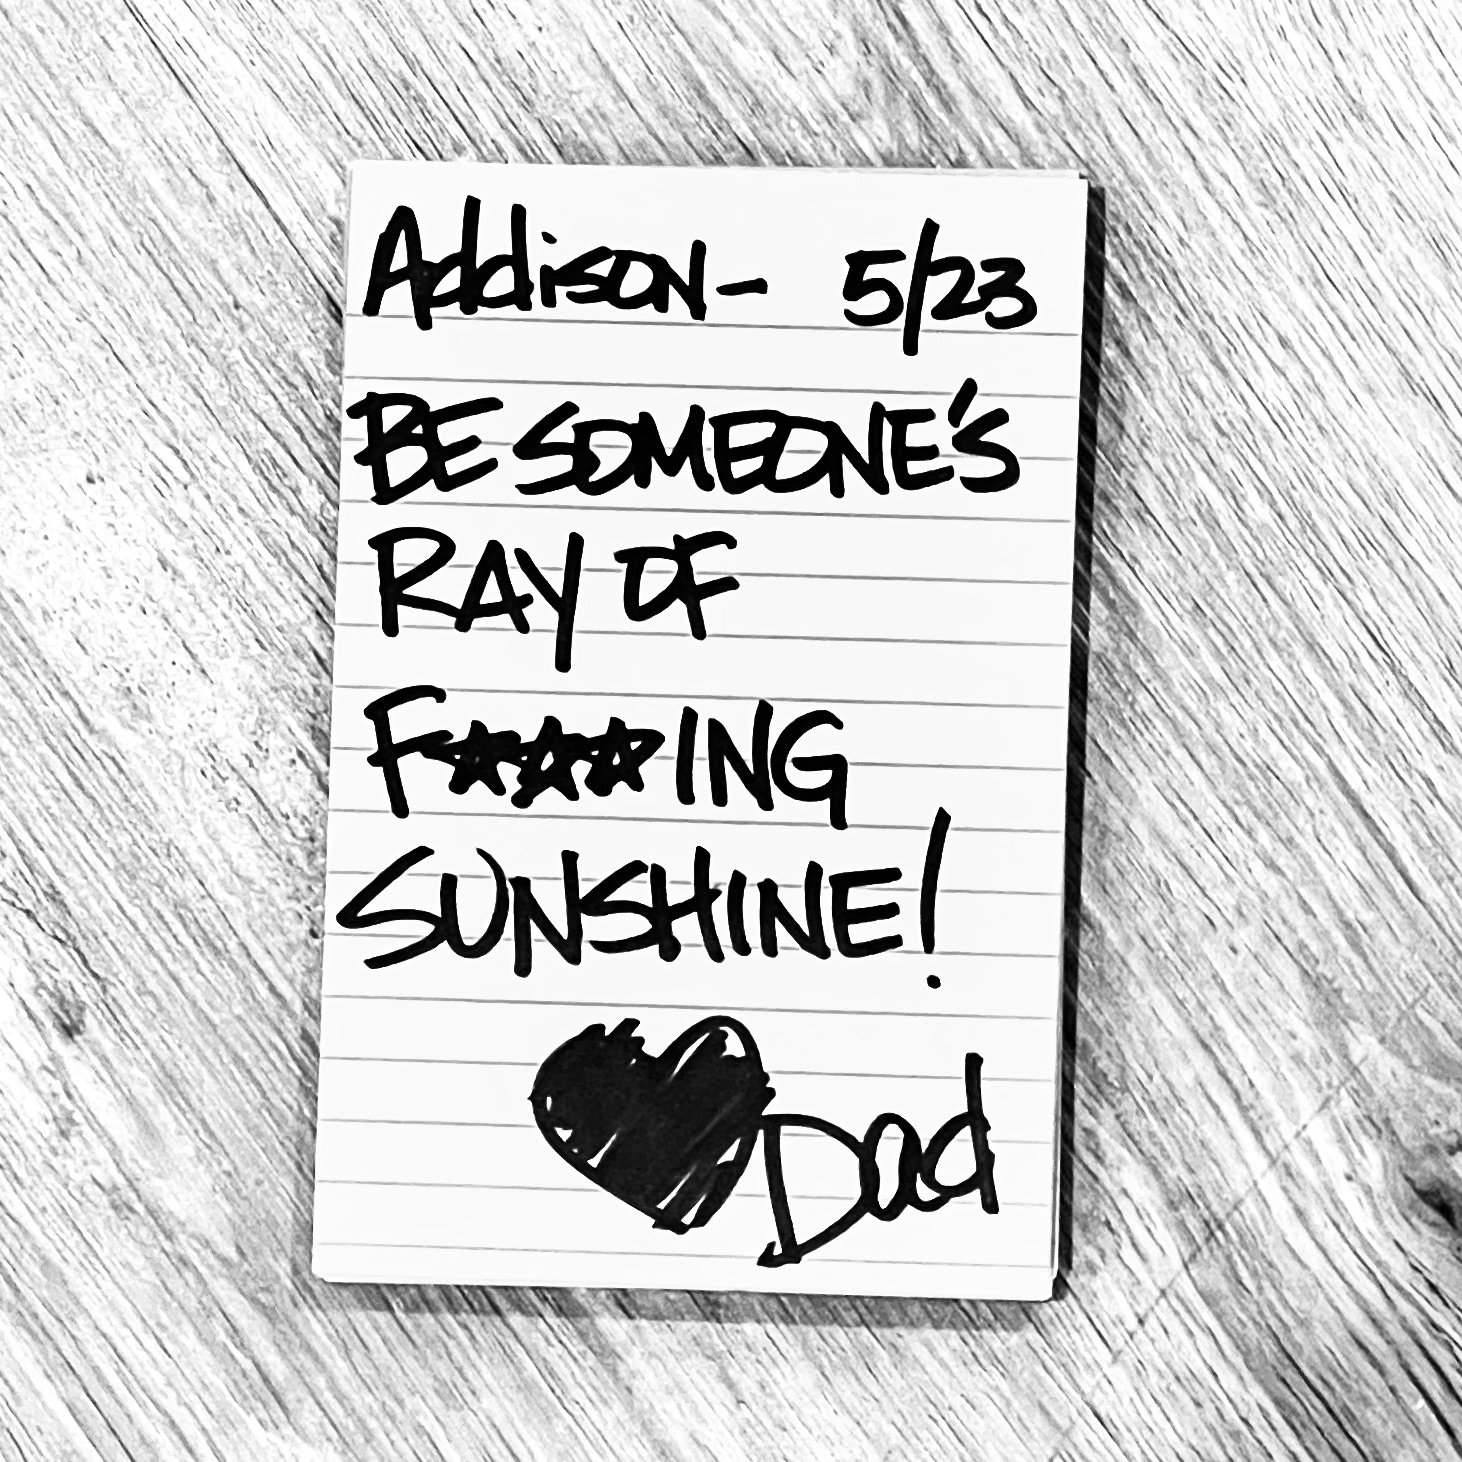 Addison- 5/23
BE SOMEONE'S
RAY OF
F★★★ING
SUNSHINE!
♥Dad